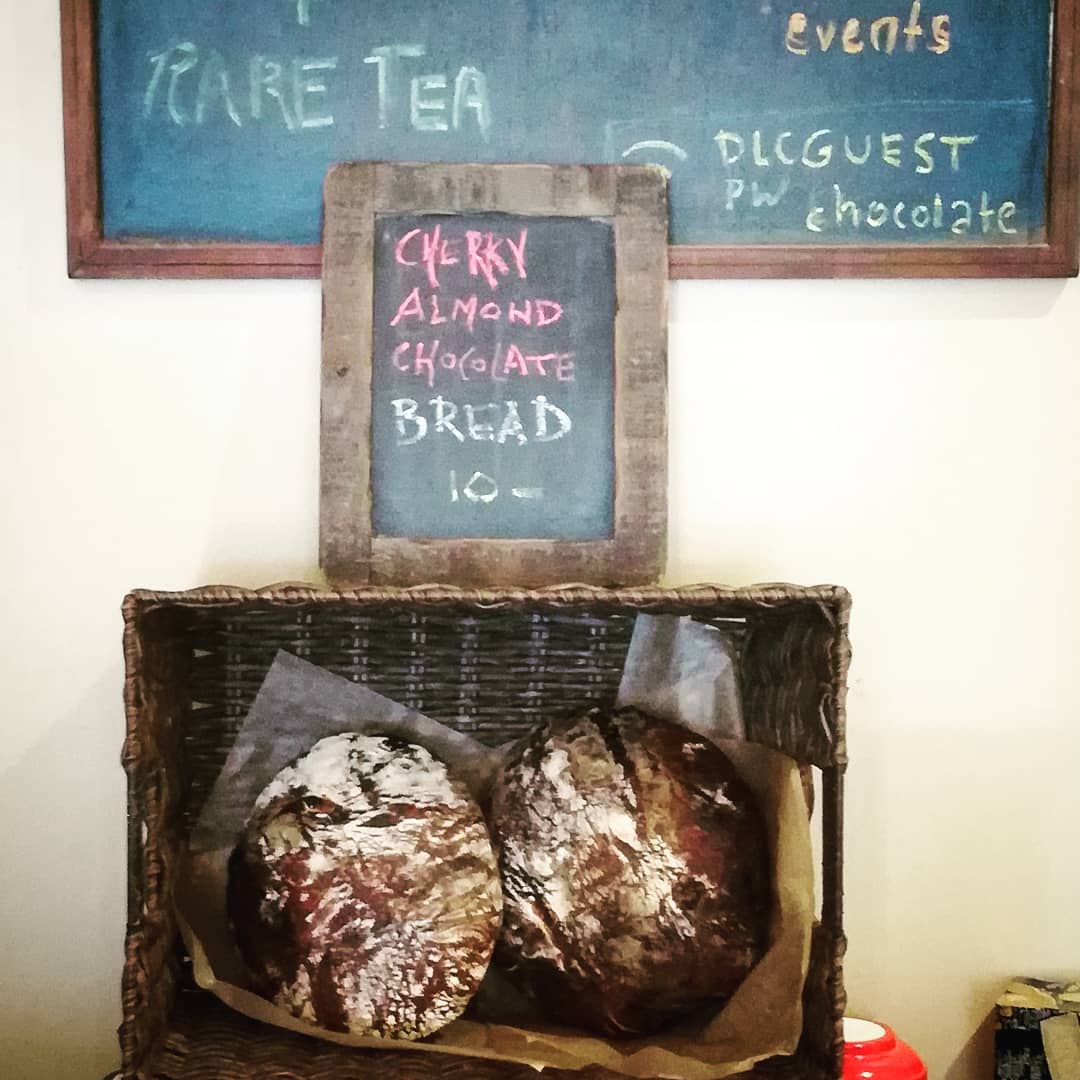 RARE TEA
events
DLCGUEST
PW chocolate
CHERRY
ALMOND
CHOCOLATE
BREAD
10-